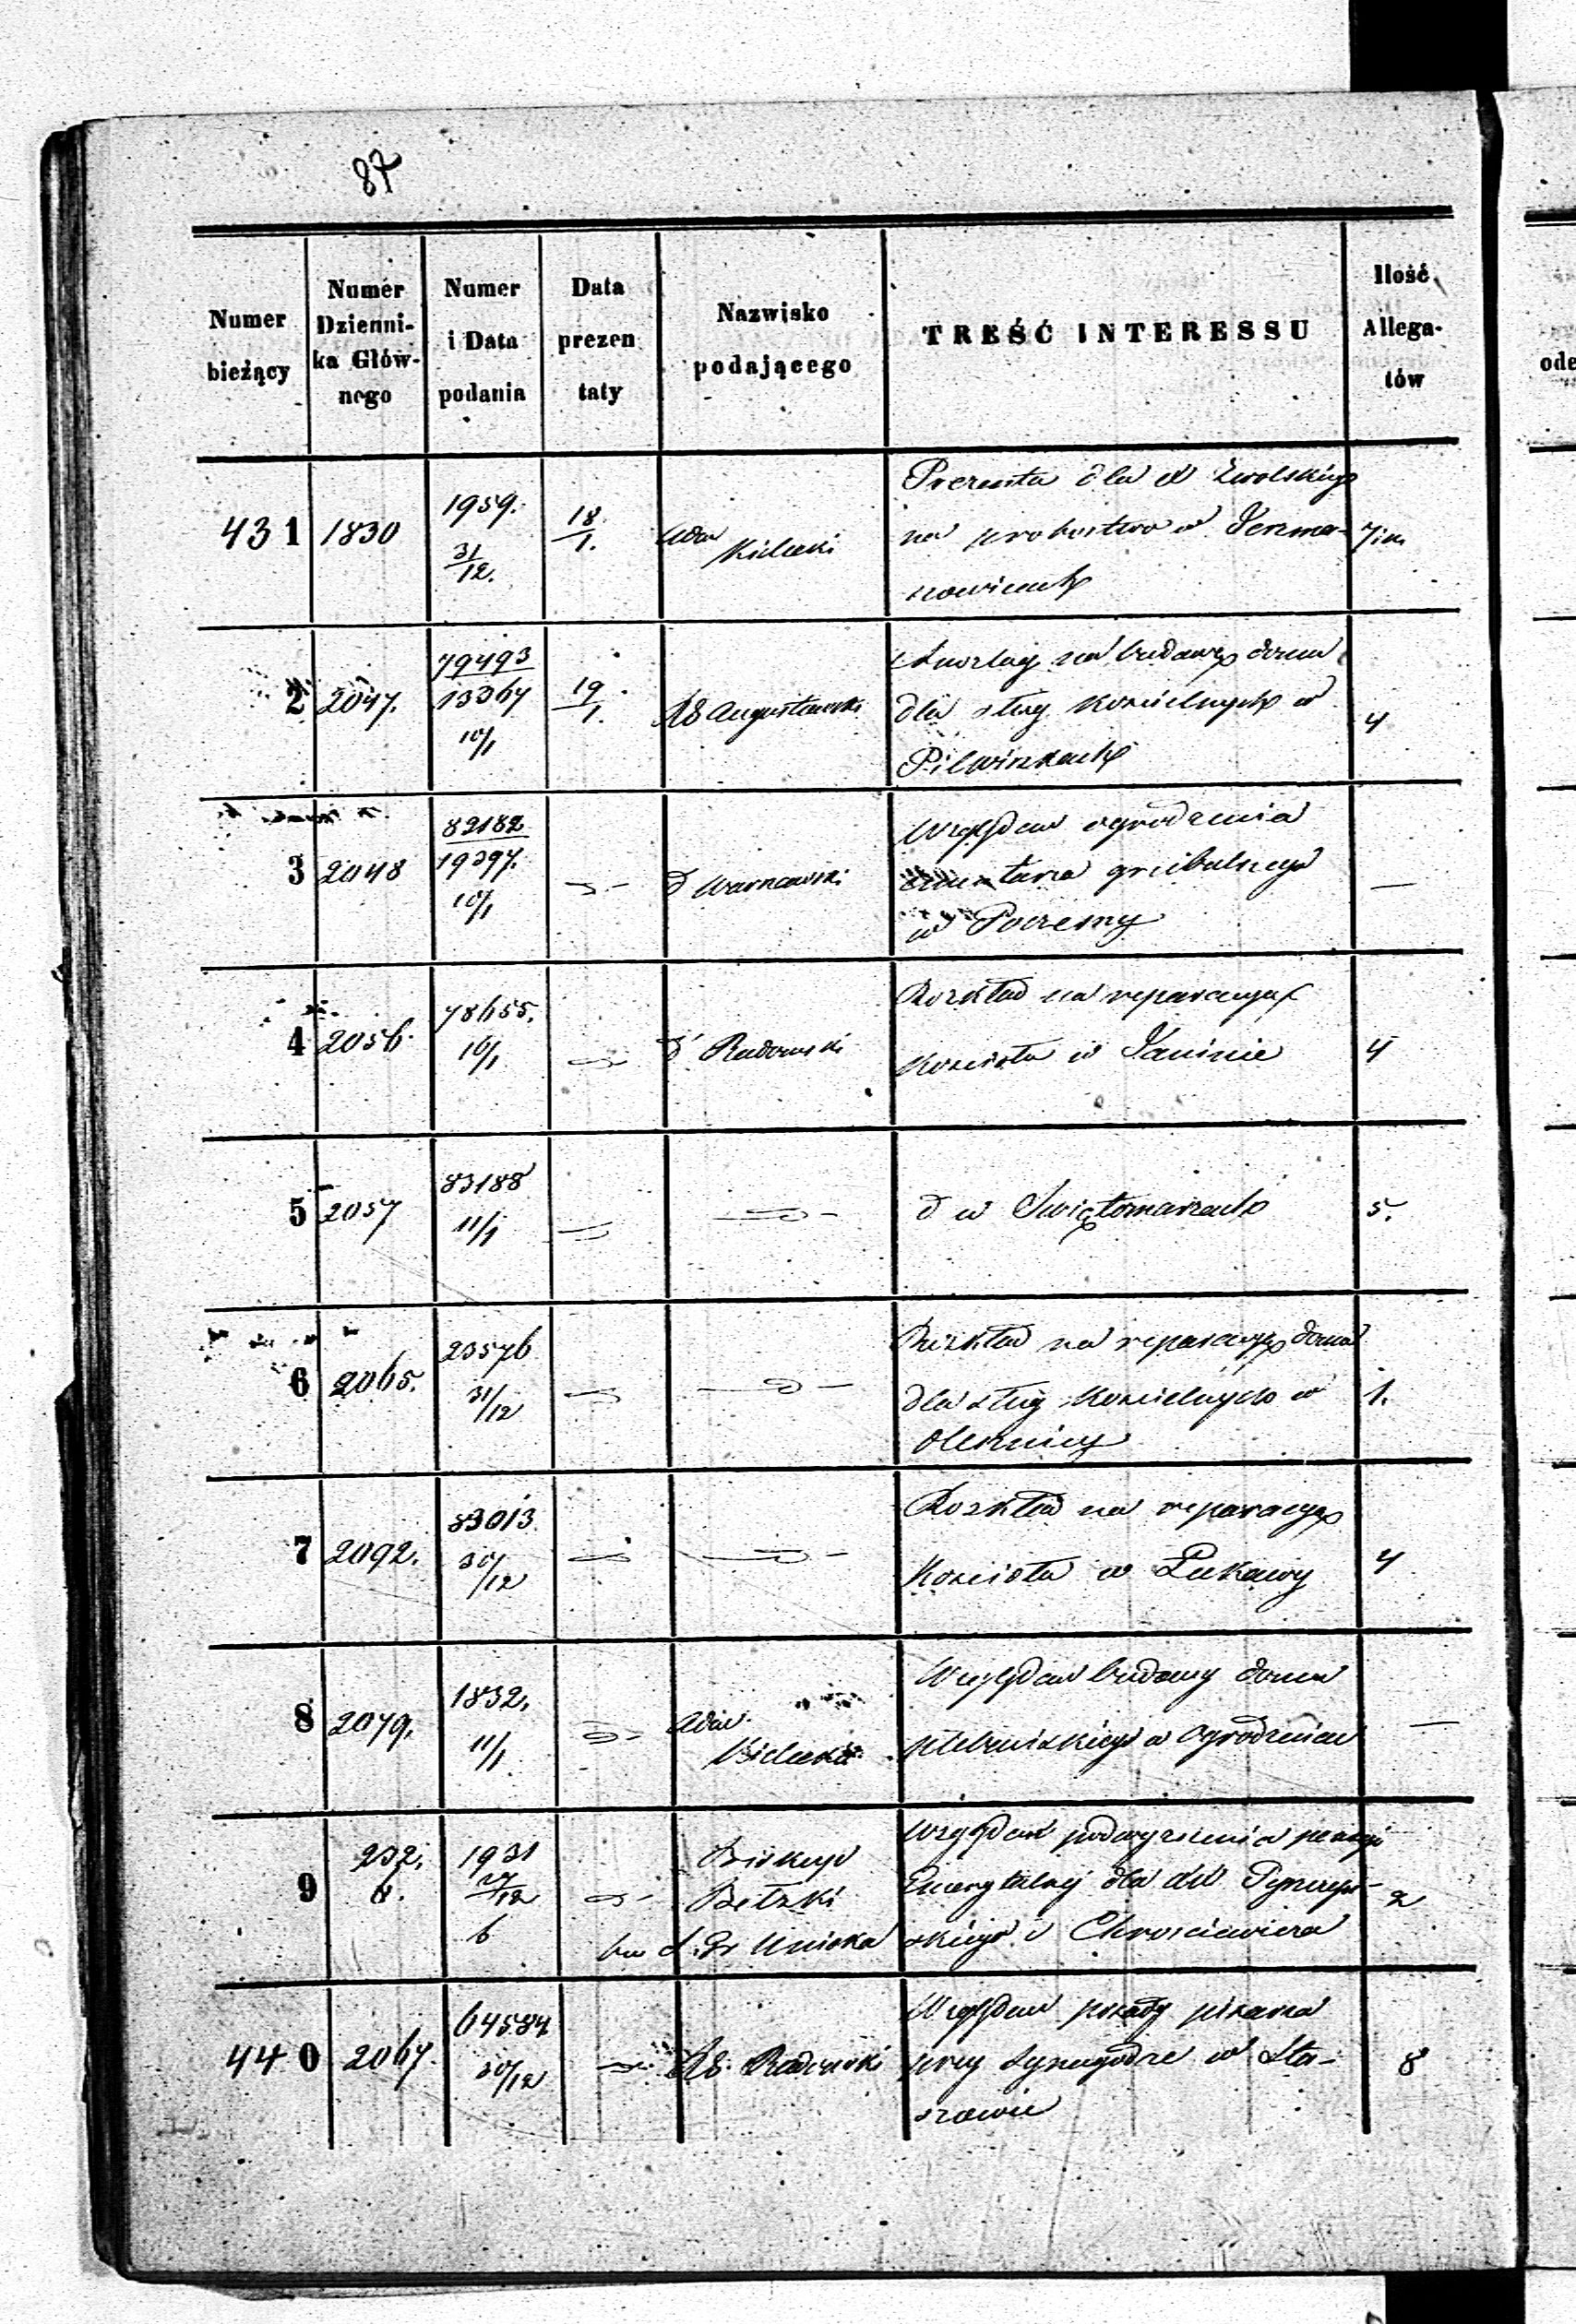 87
Numer bieżący
Numer Dzienni-
ka Głów-
nego
Numer i Data podania
Data prezen
taty
Nazwisko podającego
TREŚĆ INTERESSU
Ilość Allega-
tów
ode
431 1830 1959. 31/12. 18/1. Adm Kielecki
Prezenta dla X
na probostwo w Jerzma-
nowicach
2 2047. 79493/13367 10/1 19/1. RG Augustowski
na budowę domu
dla sług kościelnych w
Pilwiszkach
4
3 2048 82182/19397. 10/1 d Warszawski
Względem ogrodzenia
cmentarza grzebalnego
w Poczesny
—
4 2056. 78655. 10/1 d Radomski
Rozkład na reparacyą
Kościoła w Janinie
4
5 2057 83188 11/1
d w Świętomarzu
5.
6 2065. 23576 31/12
Rozkład na reparacyę domu
dla sług Kościelnych w
Olesnicy
1.
7 2092. 83013. 30/12
Rozkład na reparacyę
Kościoła w Łukawy
4
8 2079. 1832. 11/1 Adm. Kielecki
Względem budowy domu
plebańskiego w Ogrodzieńcu
—
9 232. 1931 27/12 6 Biskup
Bełzki
Względem podwyższenia pensyi
Emerytalnej dla
skiego i Chrościewicza
2
440 2067. 64584 30/12 RG. Radomski
Względem posady pisarza
przy Synagodze w Sta-
szowie
8